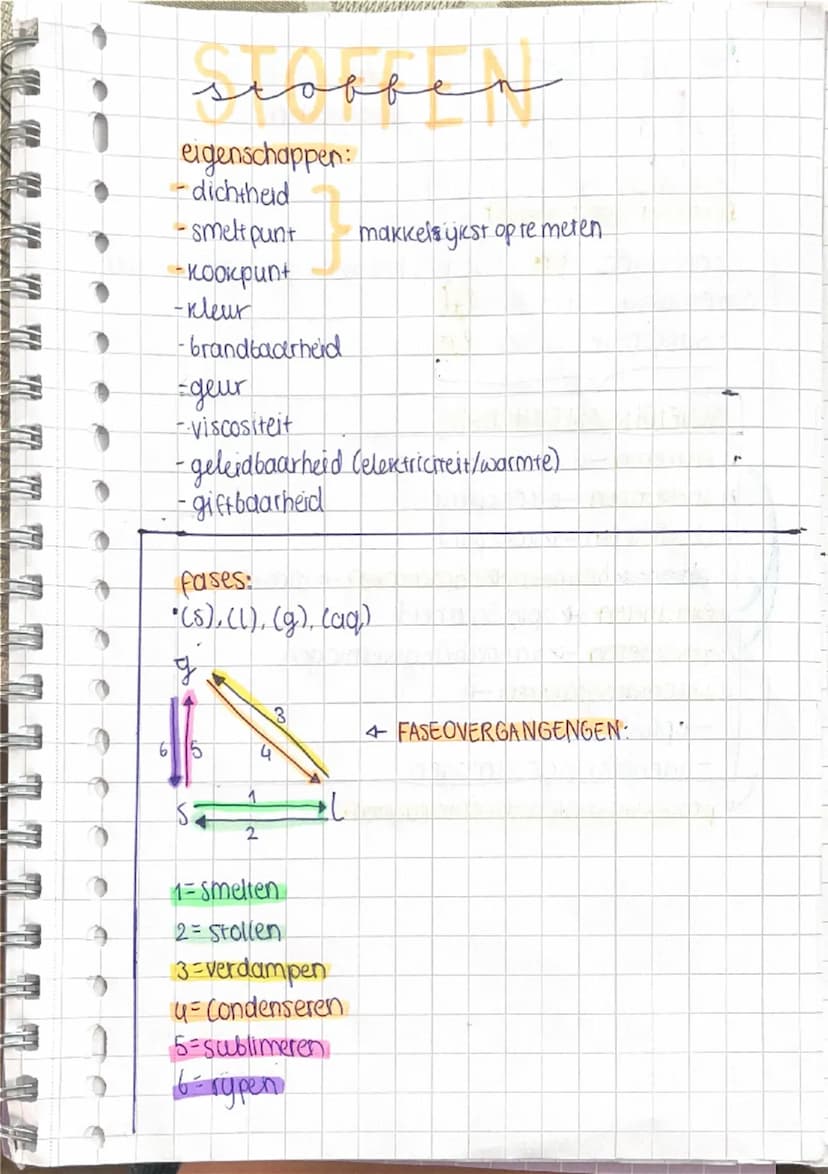 STOFFEN
stoffen
eigenschappen:
- dichtheid
- smeltpunt
- kookpunt
makkelijkst op te meten
- kleur
- brandbaarheid
- geur
- viscositeit
- geleidbaarheid (elektriciteit/warmte)
- giftbaarheid
fases:
•(s), (l), (g), (aq)
g
3
6 5 4
← FASEOVERGANGENGEN:
1
s l
2
1=smelten
2=stollen
3=verdampen
4=condenseren
5=sublimeren
6=rijpen